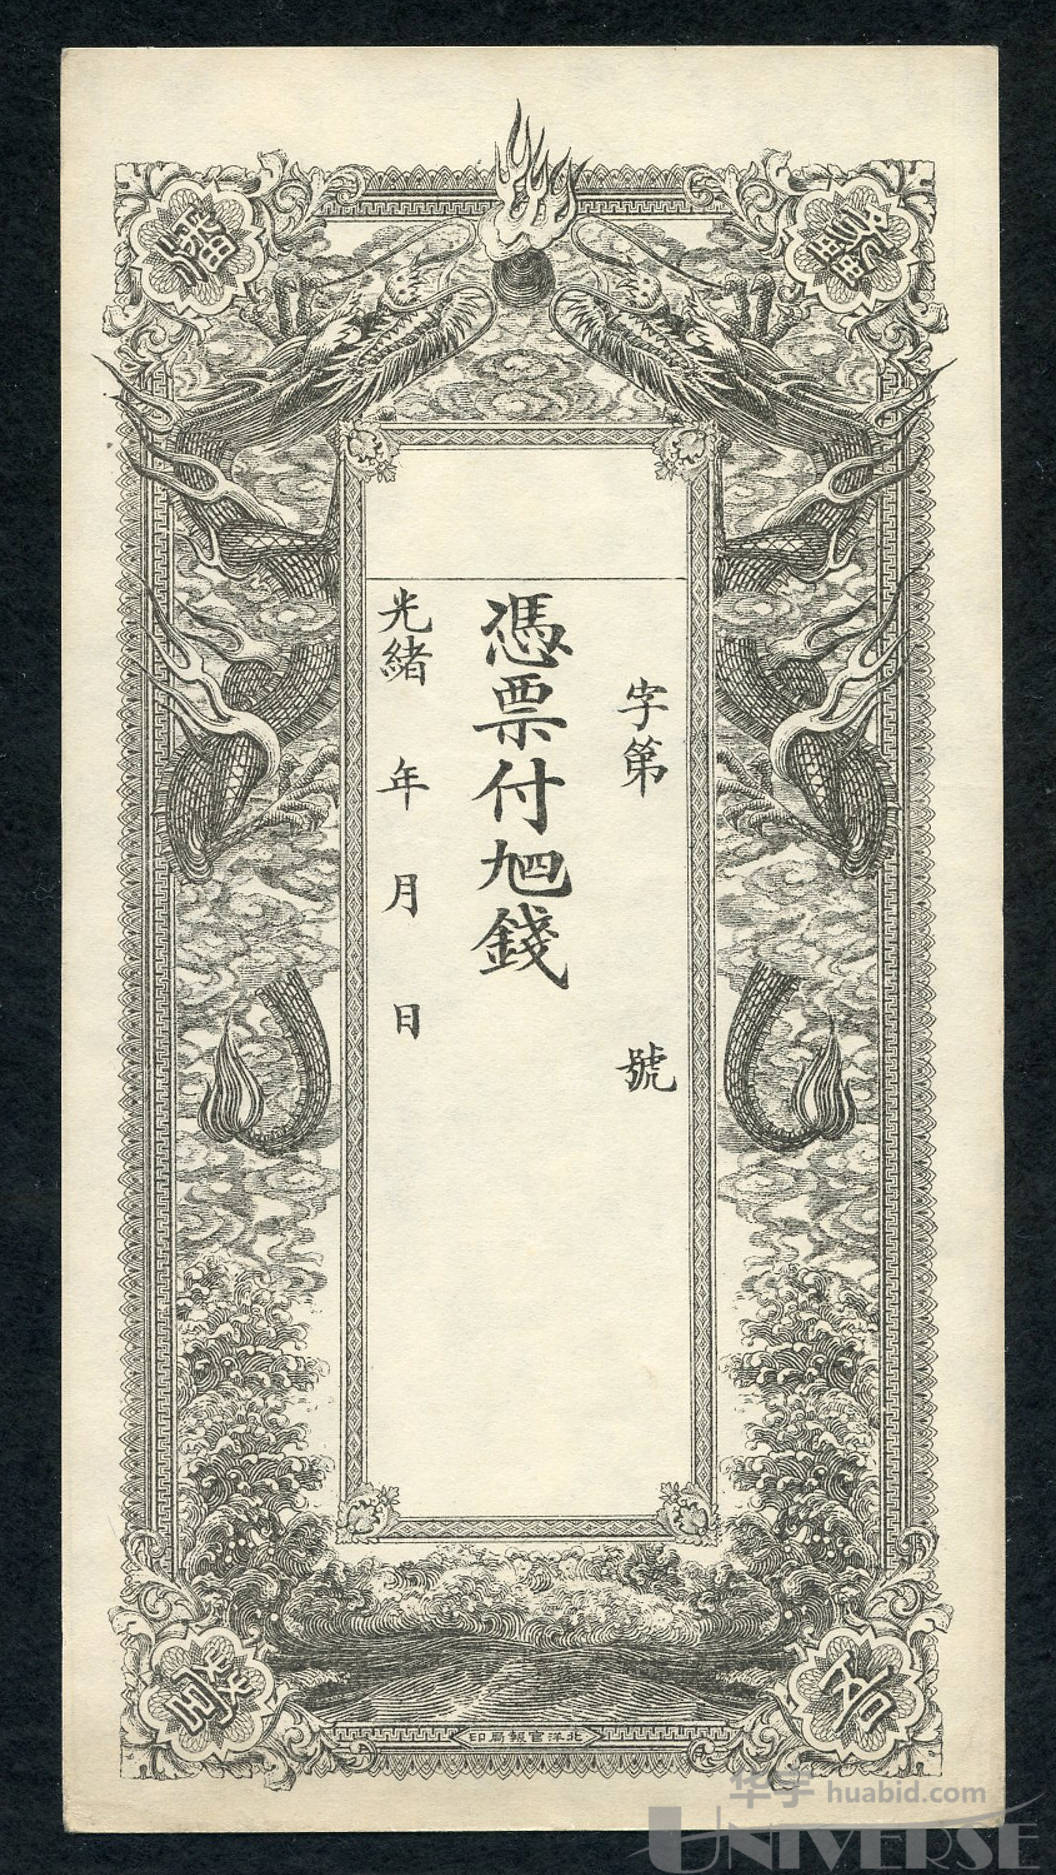 字第 號
憑票付九四錢
光緒 年 月 日
北洋官報局印
华宇 huabid.com
UNIVERSE